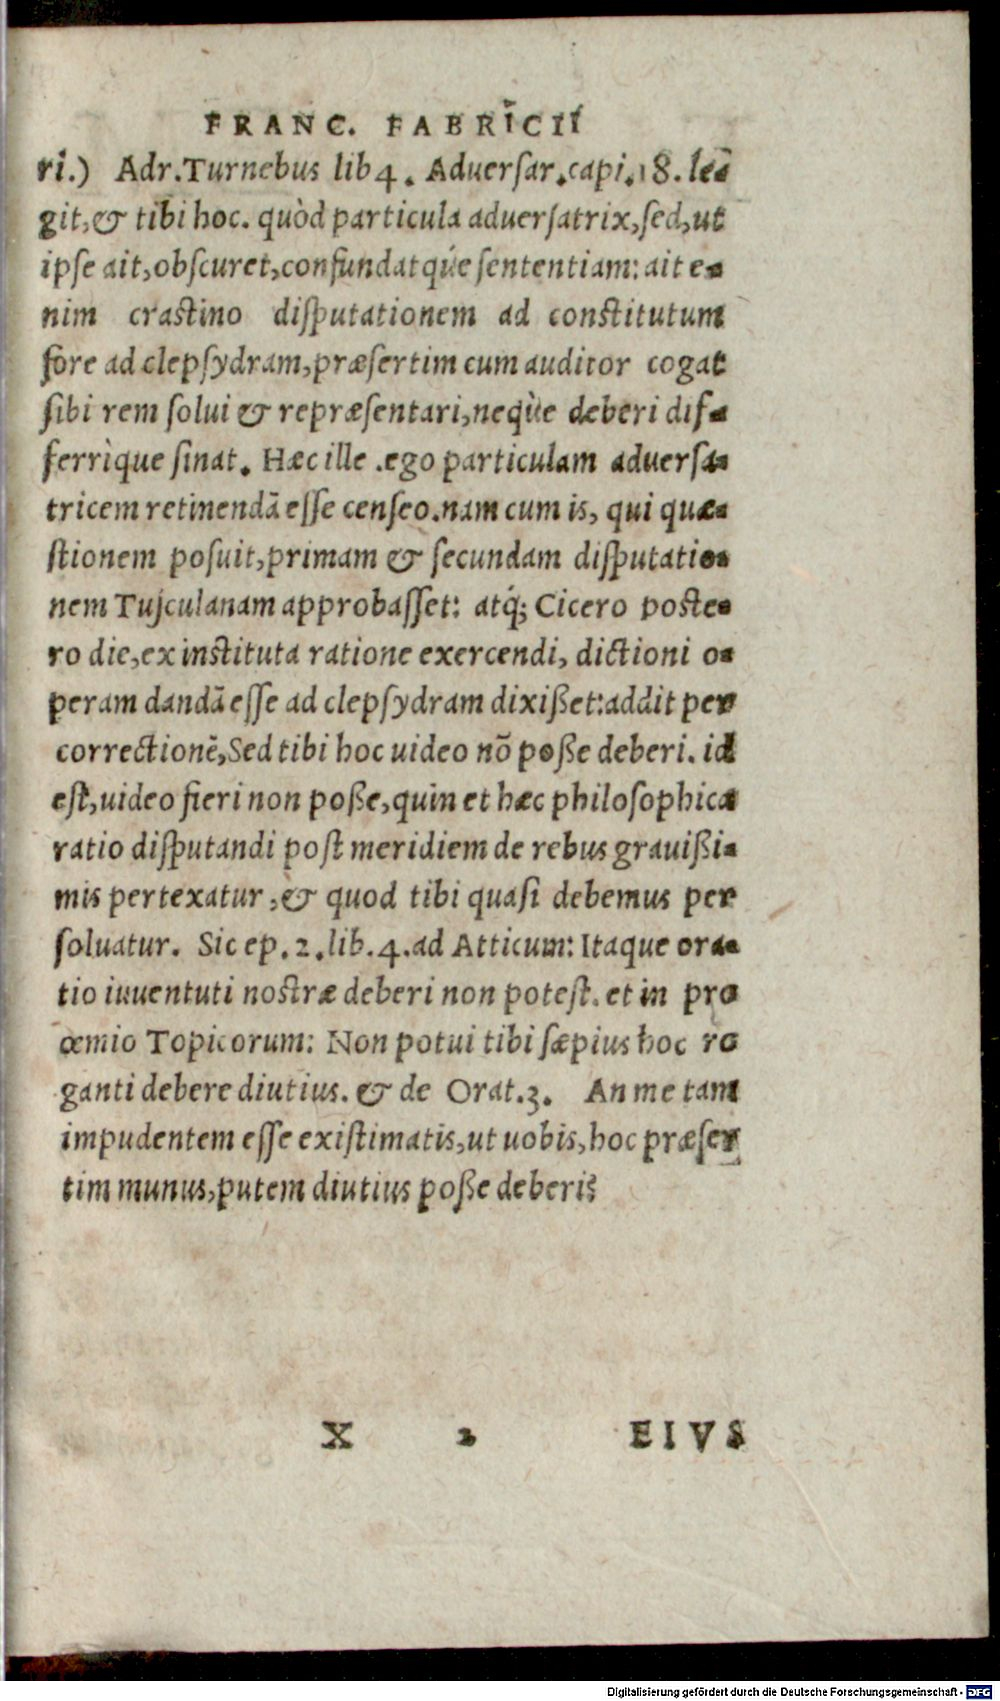 FRANC. FABRICII
ri.) Adr. Turnebus lib 4. Aduersar. capi. 18. le-
git, & tibi hoc. quòd particula aduersatrix, sed, ut
ipse ait, obscuret, confundatqúe sententiam: ait e-
nim crastino disputationem ad constitutum
fore ad clepsydram, præsertim cum auditor cogat
sibi rem solui & repræsentari, neqùe deberi dif-
ferrìque sinat. Hæc ille . ego particulam aduersa-
tricem retinendā esse censeo. nam cum is, qui quæ-
stionem posuit, primam & secundam disputatio-
nem Tusculanam approbasset: atq́; Cicero poste-
ro die, ex instituta ratione exercendi, dictioni o-
peram dandā esse ad clepsydram dixißet: addit per
correctionē, Sed tibi hoc uideo nō poße deberi. id
est, uideo fieri non poße, quin et hæc philosophica
ratio disputandi post meridiem de rebus grauißi-
mis pertexatur, & quod tibi quasi debemus per
soluatur. Sic ep. 2. lib. 4. ad Atticum: Itaque ora-
tio iuuentuti nostræ deberi non potest. et in pro
œmio Topicorum: Non potui tibi sæpius hoc ro
ganti debere diutius. & de Orat. 3. An me tam
impudentem esse existimatis, ut uobis, hoc præser
tim munus, putem diutius poße deberi?
X 2 EIVS
Digitalisierung gefördert durch die Deutsche Forschungsgemeinschaft - DFG